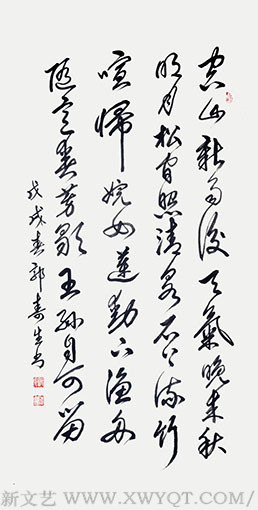 空山新雨後天氣晚來秋
明月松間照清泉石上流竹
喧歸浣女蓮動下漁舟
隨意春芳歇王孫自可留
戊戌春郭壽生书
新文艺 WWW.XWYQT.COM/